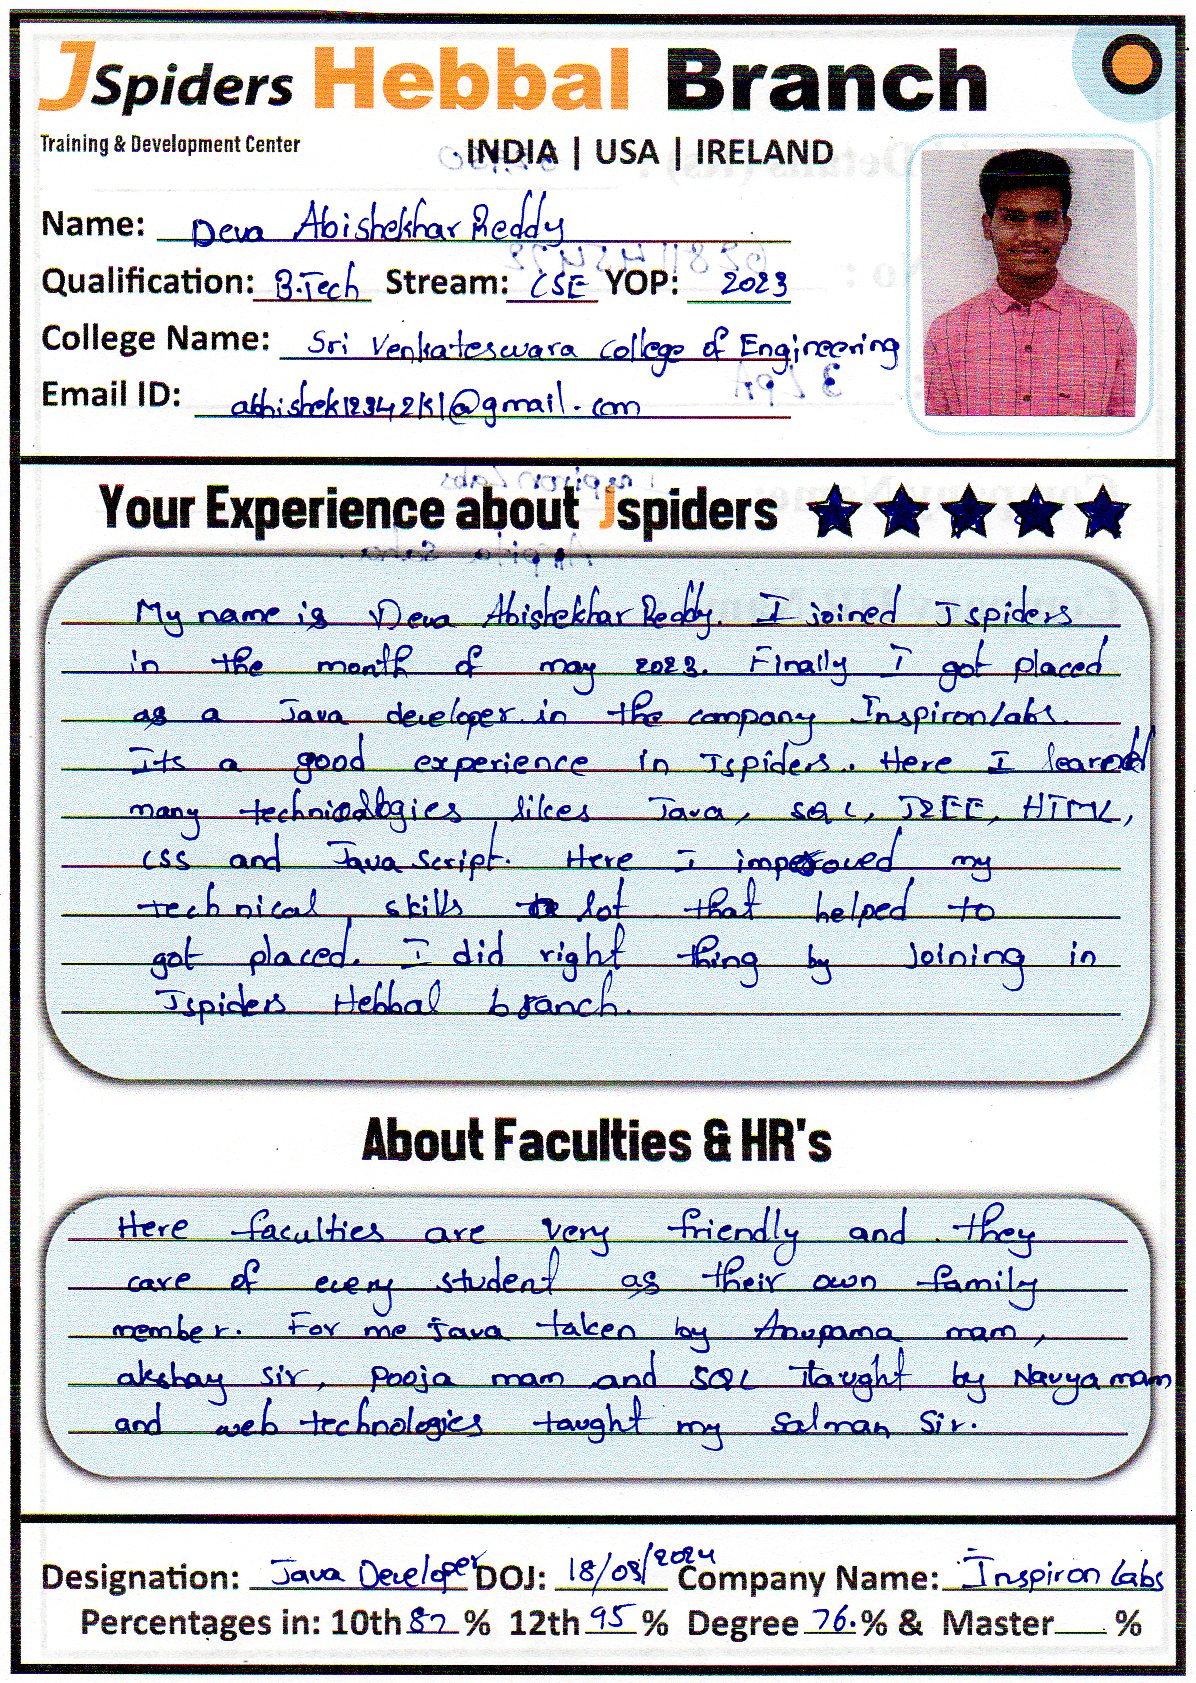 JSpiders Hebbal Branch
Training & Development Center
INDIA | USA | IRELAND
Name: Deva Abishekhar Reddy
Qualification: B.Tech Stream: CSE YOP: 2023
College Name: Sri Venkateswara college of Engineering
Email ID: abhishek12342k1@gmail.com
Your Experience about Jspiders
My name is Deva Abishekhar Reddy. I joined Jspiders
in the month of may 2023. Finally I got placed
as a Java developer in the company Inspironlabs.
Its a good experience in Jspiders. Here I learned
many technologies likes Java, SQL, J2EE, HTML,
CSS and JavaScript. Here I improved my
technical skills lot that helped to
got placed. I did right thing by Joining in
Jspiders Hebbal branch.
About Faculties & HR's
Here faculties are very friendly and they
care of every student as their own family
member. For me Java taken by Anupama mam,
akshay sir, Pooja mam and SQL taught by Navya mam
and web technologies taught my Salman Sir.
Designation: Java Developer DOJ: 18/03/2024 Company Name: Inspiron labs
Percentages in: 10th 82 % 12th 95 % Degree 76. % & Master %